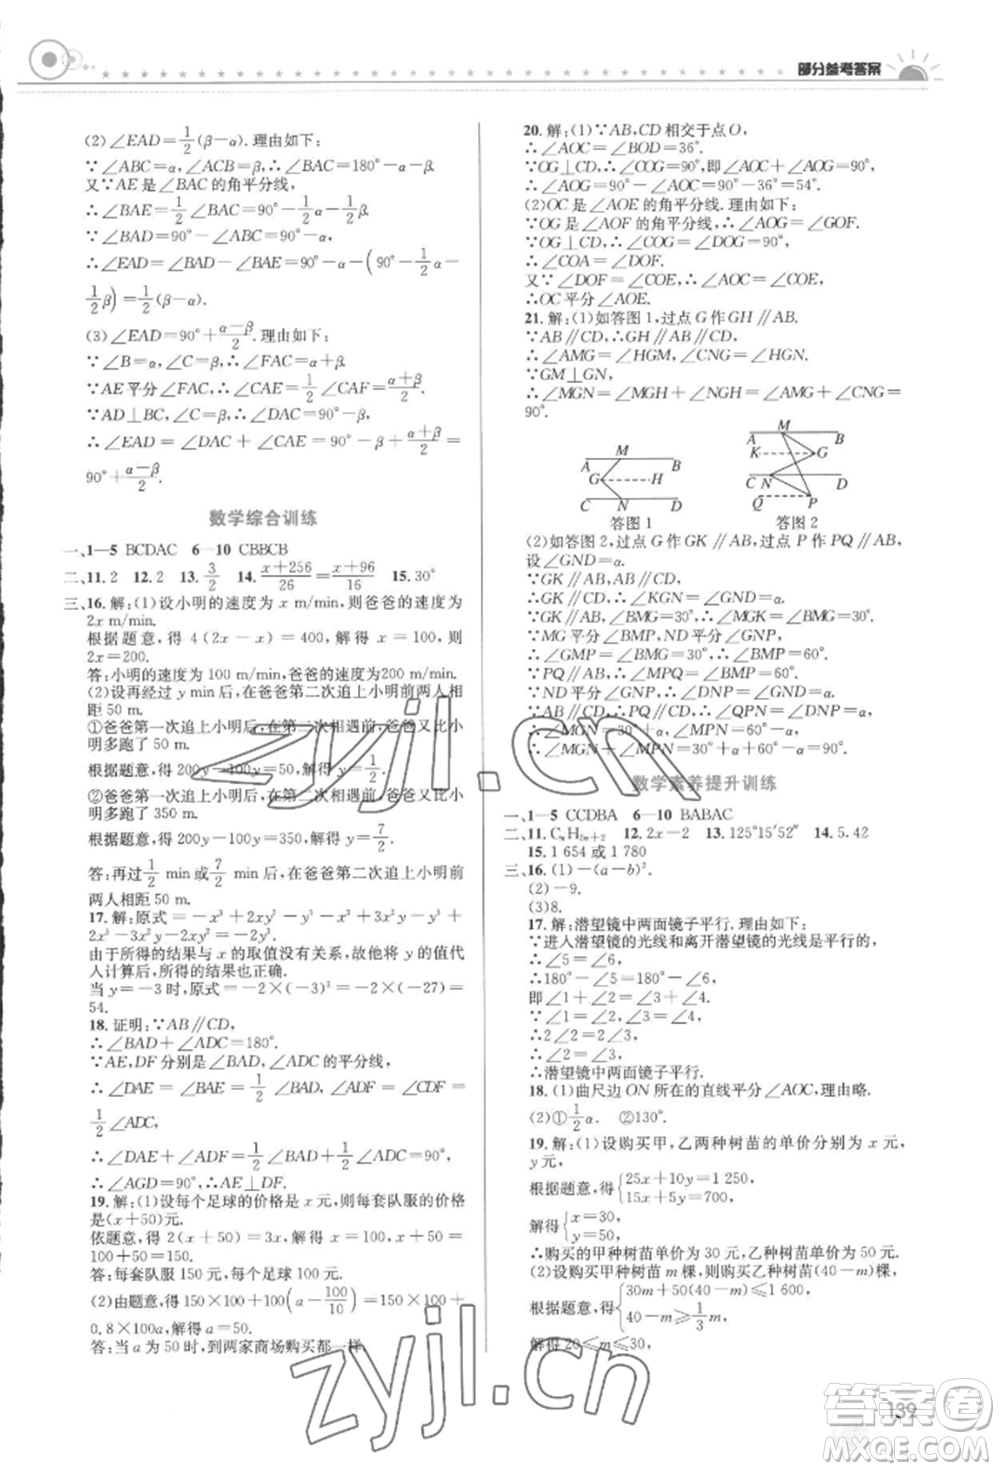 部分参考答案
(2)∠EAD=1/2(β-α).理由如下:
∵∠ABC=α,∠ACB=β,∴∠BAC=180°-α-β.
又∵AE是∠BAC的角平分线,
∴∠BAE=1/2∠BAC=90°-1/2α-1/2β.
∵∠BAD=90°-∠ABC=90°-α,
∴∠EAD=∠BAD-∠BAE=90°-α-(90°-1/2α-
1/2β)=1/2(β-α).
(3)∠EAD=90°+(α-β)/2.理由如下:
∵∠B=α,∠C=β,∴∠FAC=α+β.
∵AE平分∠FAC,∴∠CAE=1/2∠CAF=(α+β)/2.
∵AD⊥BC,∴∠DAC=90°-β,
∴∠EAD=∠DAC+∠CAE=90°-β+(α+β)/2=
90°+(α-β)/2.
数学综合训练
一、1—5 BCDAC 6—10 CBBCB
二、11.2 12.2 13.3/2 14.(x+256)/26=(x+96)/16 15.30°
三、16.解:(1)设小明的速度为x m/min,则爸爸的速度为
2x m/min.
根据题意,得4(2x-x)=400,解得x=100,则
2x=200.
答:小明的速度为100 m/min,爸爸的速度为200 m/min.
(2)设再经过y min后,在爸爸第二次追上小明前两人相
距50 m.
①爸爸第一次追上小明后,在第二次相遇前,爸爸又比小
明多跑了50 m.
根据题意,得200y-100y=50,解得y=1/2.
②爸爸第一次追上小明后,在第二次相遇前,爸爸又比小
明多跑了350 m.
根据题意,得200y-100y=350,解得y=7/2.
答:再过1/2 min或7/2 min后,在爸爸第二次追上小明前
两人相距50 m.
17.解:原式=-x³+2xy²-y³+x³-2xy²-y³=
-2y³.
由于所得的结果与x的取值没有关系,故将y的值代
入计算后,所得的结果也正确.
当y=-3时,原式=-2×(-3)³=-2×(-27)=
54.
18.证明:∵AB∥CD,
∴∠BAD+∠ADC=180°.
∵AE,DF分别是∠BAD,∠ADC的平分线,
∴∠DAE=∠BAE=1/2∠BAD,∠ADF=∠CDF=
1/2∠ADC,
∴∠DAE+∠ADF=1/2∠BAD+1/2∠ADC=90°,
∴∠AGD=90°,∴AE⊥DF.
19.解:(1)设每个足球的价格是x元,则每套队服的价格
是(x+50)元.
依题意,得2(x+50)=3x,
解得x=100,x+50=150.
答:每套队服150元,每个足球100元.
(2)由题意,得150×100+100(a-100/10)=150×100+
0.8×100a,解得a=50.
答:当a为50时,到两家商场购买都一样.
20.解:(1)∵AB,CD相交于点O,
∴∠AOC=∠BOD=36°.
∵OG⊥CD,∴∠COG=90°,即∠AOC+∠AOG=90°,
∴∠AOG=90°-∠AOC=90°-36°=54°.
(2)OC是∠AOE的角平分线.理由如下:
∵OG是∠AOF的角平分线,∴∠AOG=∠GOF.
∵OG⊥CD,∴∠COG=∠DOG=90°,
∴∠COA=∠DOF.
又∵∠DOF=∠COE,∴∠AOC=∠COE,
∴OC平分∠AOE.
21.解:(1)如答图1,过点G作GH∥AB.
∵AB∥CD,∴GH∥AB∥CD,
∴∠AMG=∠HGM,∠CNG=∠HGN.
∵GM⊥GN,
∴∠MGN=∠MGH+∠NGH=∠AMG+∠CNG=
90°.
A M B
G H
C N D
答图1
A M B
K G
C N D
Q P
答图2
(2)如答图2,过点G作GK∥AB,过点P作PQ∥AB,
设∠GND=α.
∵GK∥AB,AB∥CD,
∴GK∥CD,∴∠KGN=∠GND=α.
∵GK∥AB,∠BMG=30°,∴∠MGK=∠BMG=30°.
∵MG平分∠BMP,ND平分∠GNP,
∴∠GMP=∠BMG=30°,∴∠BMP=60°.
∵PQ∥AB,∴∠MPQ=∠BMP=60°.
∵ND平分∠GNP,∴∠DNP=∠GND=α.
∵AB∥CD,∴PQ∥CD,∴∠QPN=∠DNP=α,
∴∠MGN=30°+α,∠MPN=60°-α,
∴∠MGN+∠MPN=30°+α+60°-α=90°.
数学素养提升训练
一、1—5 CCDBA 6—10 BABAC
二、11.CₙH₂ₙ₊₂ 12.2x-2 13.125°15′52″ 14.5.42
15.1 654或1 780
三、16.(1)-(a-b)².
(2)-9.
(3)8.
17.解:潜望镜中两面镜子平行.理由如下:
∵进入潜望镜的光线和离开潜望镜的光线是平行的,
∴∠5=∠6,
∴180°-∠5=180°-∠6,
即∠1+∠2=∠3+∠4,
∴2∠2=2∠3,
∴∠2=∠3,
∴潜望镜中两面镜子平行.
18.(1)曲尺边ON所在的直线平分∠AOC,理由略.
(2)①1/2α. ②130°.
19.解:(1)设购买甲,乙两种树苗的单价分别为x元,
y元.
根据题意,得{25x+10y=1 250,
15x+5y=700,
解得{x=30,
y=50,
∴购买的甲种树苗单价为30元,乙种树苗单价为50元.
(2)设购买甲种树苗m棵,则购买乙种树苗(40-m)棵,
根据题意,得{30m+50(40-m)≤1 600,
40-m≥1/3m,
解得20≤m≤30,
139
zyjl.cn
zyjl.cn
答案圈
MXQE.COM